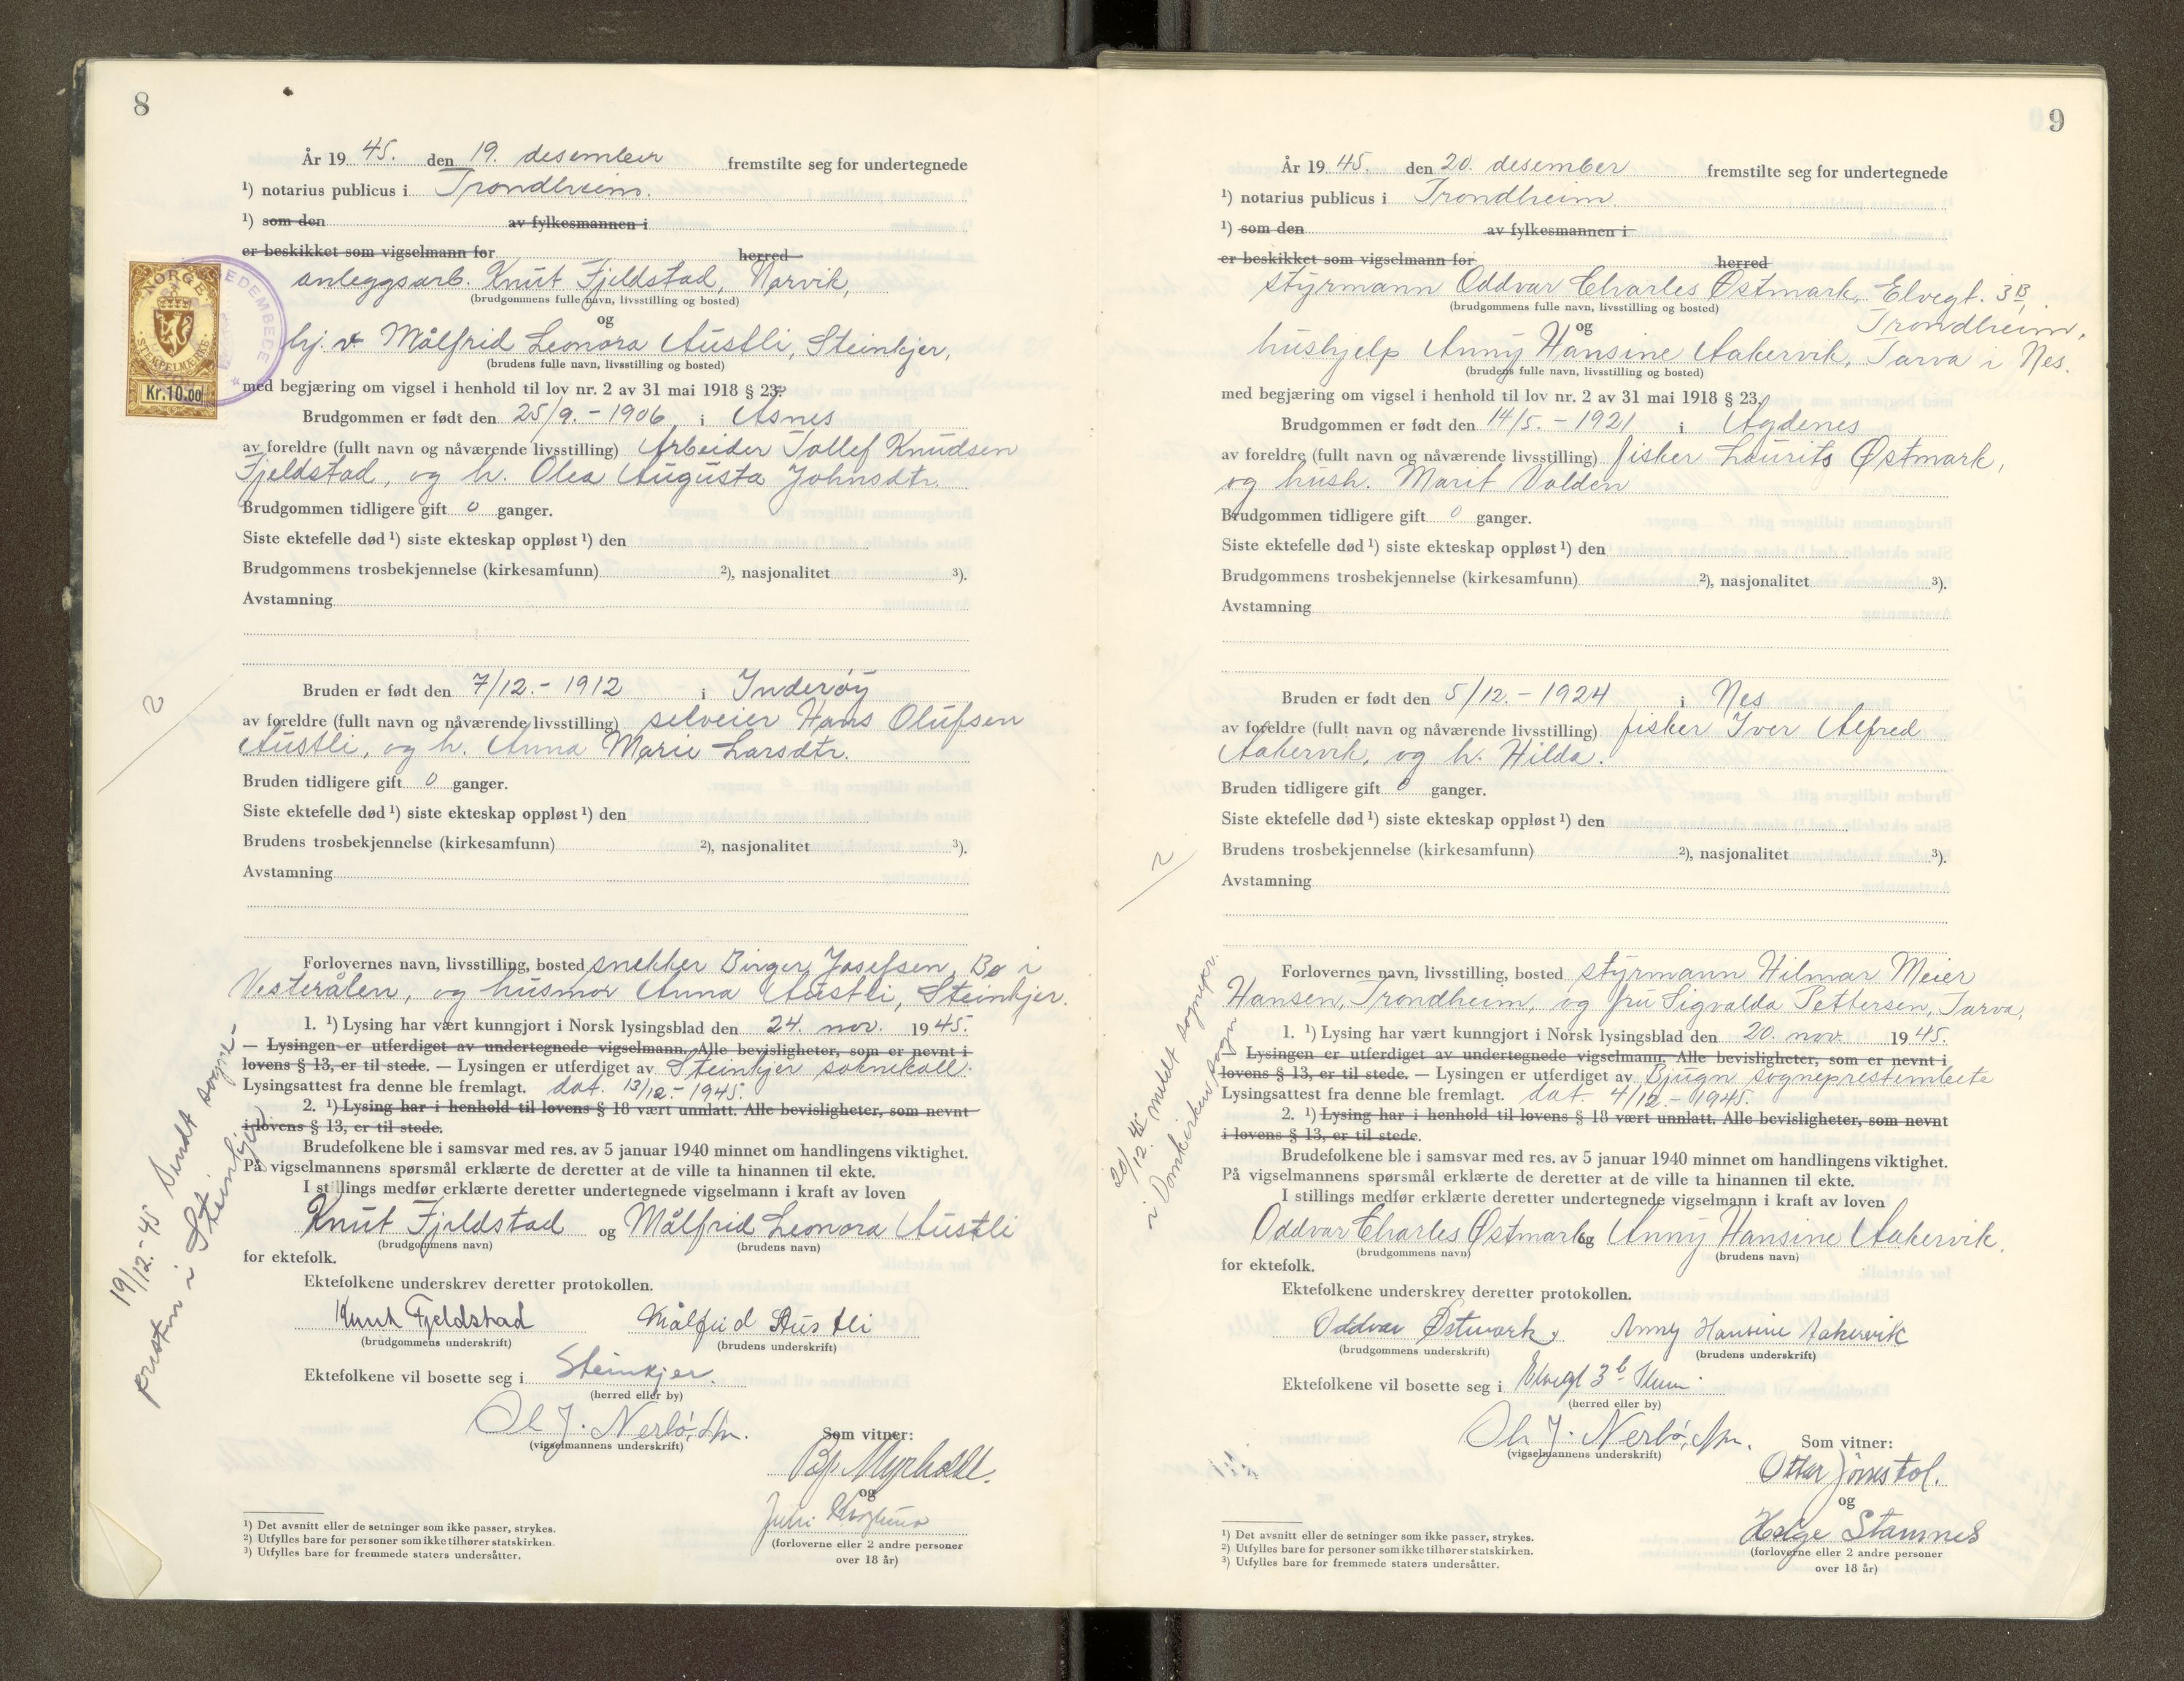 8
År 19 45. den 19. desember fremstilte seg for undertegnede
¹) notarius publicus i Trondheim.
¹) som den av fylkesmannen i
er beskikket som vigselmann for herred
anleggsarb. Knut Fjeldstad, Narvik,
(brudgommens fulle navn, livsstilling og bosted)
og
hj. v. Målfrid Leonora Austli, Steinkjer,
(brudens fulle navn, livsstilling og bosted)
NORGE
STEMPELMERKE
Kr.10.00
med begjæring om vigsel i henhold til lov nr. 2 av 31 mai 1918 § 23.
Brudgommen er født den 25/9. - 1906 i Åsnes
av foreldre (fullt navn og nåværende livsstilling) Arbeider Tollef Knudsen
Fjeldstad, og h. Olea Augusta Johnsdtr.
Brudgommen tidligere gift 0 ganger.
Siste ektefelle død ¹) siste ekteskap oppløst ¹) den
Brudgommens trosbekjennelse (kirkesamfunn) ²), nasjonalitet ³).
Avstamning
2
Bruden er født den 7/12. - 1912 i Inderøy
av foreldre (fullt navn og nåværende livsstilling) selveier Hans Olufsen
Austli, og h. Anna Marie Larsdtr.
Bruden tidligere gift 0 ganger.
Siste ektefelle død ¹) siste ekteskap oppløst ¹) den
Brudens trosbekjennelse (kirkesamfunn) ²), nasjonalitet ³).
Avstamning
Forlovernes navn, livsstilling, bosted snekker Birger Josefsen, Bø i
Vesterålen, og husmor Anna Austli, Steinkjer.
1. ¹) Lysing har vært kunngjort i Norsk lysingsblad den 24. nov. 19 45.
— Lysingen er utferdiget av undertegnede vigselmann. Alle bevisligheter, som er nevnt i
lovens § 13, er til stede. — Lysingen er utferdiget av Steinkjer soknekall.
Lysingsattest fra denne ble fremlagt. dat. 13/12. - 1945.
2. ¹) Lysing har i henhold til lovens § 18 vært unnlatt. Alle bevisligheter, som nevnt
i lovens § 13, er til stede.
Brudefolkene ble i samsvar med res. av 5 januar 1940 minnet om handlingens viktighet.
På vigselmannens spørsmål erklærte de deretter at de ville ta hinannen til ekte.
I stillings medfør erklærte deretter undertegnede vigselmann i kraft av loven
Knut Fjeldstad og Målfrid Leonora Austli
(brudgommens navn) (brudens navn)
for ektefolk.
Ektefolkene underskrev deretter protokollen.
Knut Fjeldstad Målfrid Austli
(brudgommens underskrift) (brudens underskrift)
Ektefolkene vil bosette seg i Steinkjer.
(herred eller by)
Ole J. Nerbö,
(vigselmannens underskrift)
Som vitner:
Myrholdt.
og
(forloverne eller 2 andre personer
over 18 år)
¹) Det avsnitt eller de setninger som ikke passer, strykes.
²) Utfylles bare for personer som ikke tilhører statskirken.
³) Utfylles bare for fremmede staters undersåtter.
19/12.-45 Sendt sogne-
presten i Steinkjer
9
År 19 45. den 20. desember fremstilte seg for undertegnede
¹) notarius publicus i Trondheim
¹) som den av fylkesmannen i
er beskikket som vigselmann for herred
styrmann Oddvar Charles Østmark, Elvegt. 3B
(brudgommens fulle navn, livsstilling og bosted)
Trondheim,
og
hushjelp Anny Hansine Aakervik, Tarva i Nes.
(brudens fulle navn, livsstilling og bosted)
med begjæring om vigsel i henhold til lov nr. 2 av 31 mai 1918 § 23.
Brudgommen er født den 14/5. - 1921 i Agdenes
av foreldre (fullt navn og nåværende livsstilling) fisker Laurits Østmark,
og hush. Marit Valden
Brudgommen tidligere gift 0 ganger.
Siste ektefelle død ¹) siste ekteskap oppløst ¹) den
Brudgommens trosbekjennelse (kirkesamfunn) ²), nasjonalitet ³).
Avstamning
Bruden er født den 5/12. - 1924 i Nes
av foreldre (fullt navn og nåværende livsstilling) fisker Iver Alfred
Aakervik, og h. Hilda.
Bruden tidligere gift 0 ganger.
Siste ektefelle død ¹) siste ekteskap oppløst ¹) den
Brudens trosbekjennelse (kirkesamfunn) ²), nasjonalitet ³).
2
Avstamning
Forlovernes navn, livsstilling, bosted styrmann Hilmar Meier
Hansen, Trondheim, og fru Sigvalda Pettersen, Tarva,
1. ¹) Lysing har vært kunngjort i Norsk lysingsblad den 20. nov. 19 45.
— Lysingen er utferdiget av undertegnede vigselmann. Alle bevisligheter, som er nevnt i
lovens § 13, er til stede. — Lysingen er utferdiget av Bjugn sogneprestembete
Lysingsattest fra denne ble fremlagt. dat. 4/12. - 1945.
2. ¹) Lysing har i henhold til lovens § 18 vært unnlatt. Alle bevisligheter, som nevnt
i lovens § 13, er til stede.
Brudefolkene ble i samsvar med res. av 5 januar 1940 minnet om handlingens viktighet.
På vigselmannens spørsmål erklærte de deretter at de ville ta hinannen til ekte.
I stillings medfør erklærte deretter undertegnede vigselmann i kraft av loven
Oddvar Charles Østmark og Anny Hansine Aakervik.
(brudgommens navn) (brudens navn)
for ektefolk.
Ektefolkene underskrev deretter protokollen.
Oddvar Østmark, Anny Hansine Aakervik
(brudgommens underskrift) (brudens underskrift)
Ektefolkene vil bosette seg i Elvegt 3b
(herred eller by)
Ole J. Nerbö,
(vigselmannens underskrift)
Som vitner:
Ottar
og
Helge Stamnes
(forloverne eller 2 andre personer
over 18 år)
¹) Det avsnitt eller de setninger som ikke passer, strykes.
²) Utfylles bare for personer som ikke tilhører statskirken.
³) Utfylles bare for fremmede staters undersåtter.
20/12. 45 meldt sognepr.
i Domkirken sogn